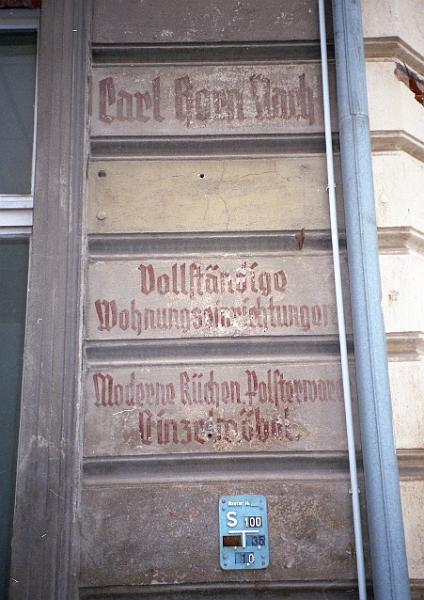 Carl Born Nach
Vollständige
Wohnungseinrichtungen
Moderne Küchen Polsterware
Einzelmöbel.
S 100
35
10